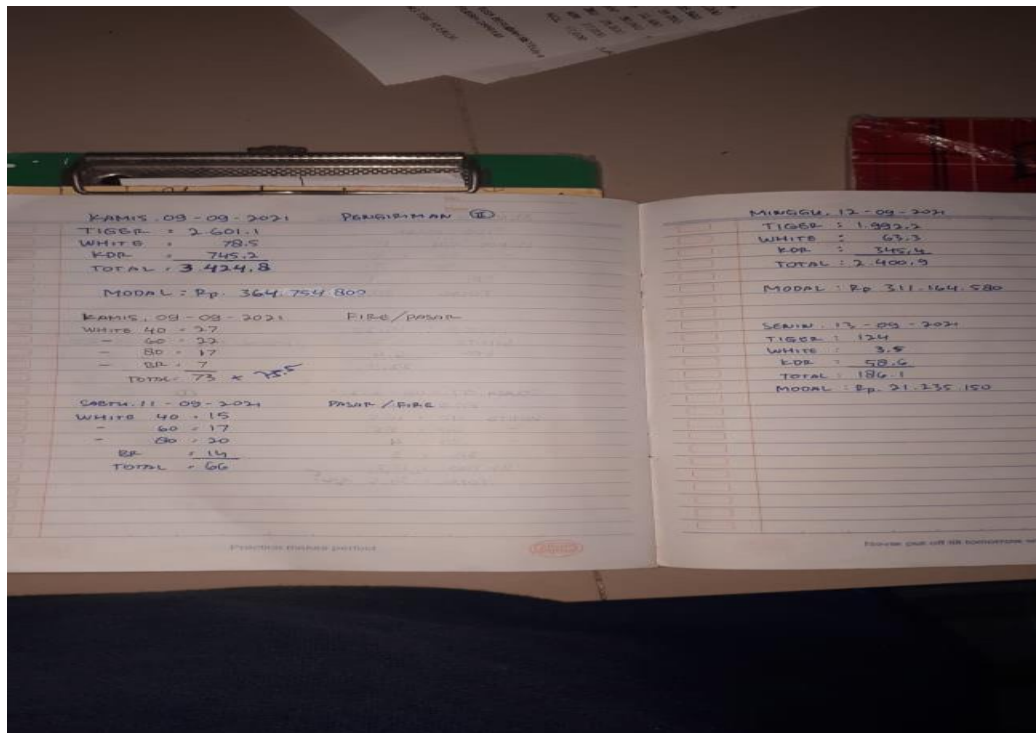 KAMIS. 09 - 09 - 2021 PENGIRIMAN II
TIGER : 2.601.1
WHITE : 78.5
KDR : 745.2
TOTAL : 3.424.8
MODAL : Rp. 364.754.800
KAMIS. 09 - 09 - 2021 FIRE/PASAR
WHITE 40 = 27
- 60 = 22
- 80 = 17
- BR = 7
TOTAL = 73 * 75.5
SABTU. 11 - 09 - 2021 PASAR / FIRE
WHITE 40 = 15
- 60 = 17
- 80 = 20
BR = 14
TOTAL = 66
Practice makes perfect
MINGGU. 12 - 09 - 2021
TIGER : 1.992.2
WHITE : 63.3
KDR : 345.4
TOTAL : 2.400.9
MODAL : Rp 311.164.580
SENIN. 13 - 09 - 2021
TIGER : 124
WHITE : 3.5
KDR : 58.6
TOTAL : 186.1
MODAL : Rp. 21.235.150
Never put off till tomorrow